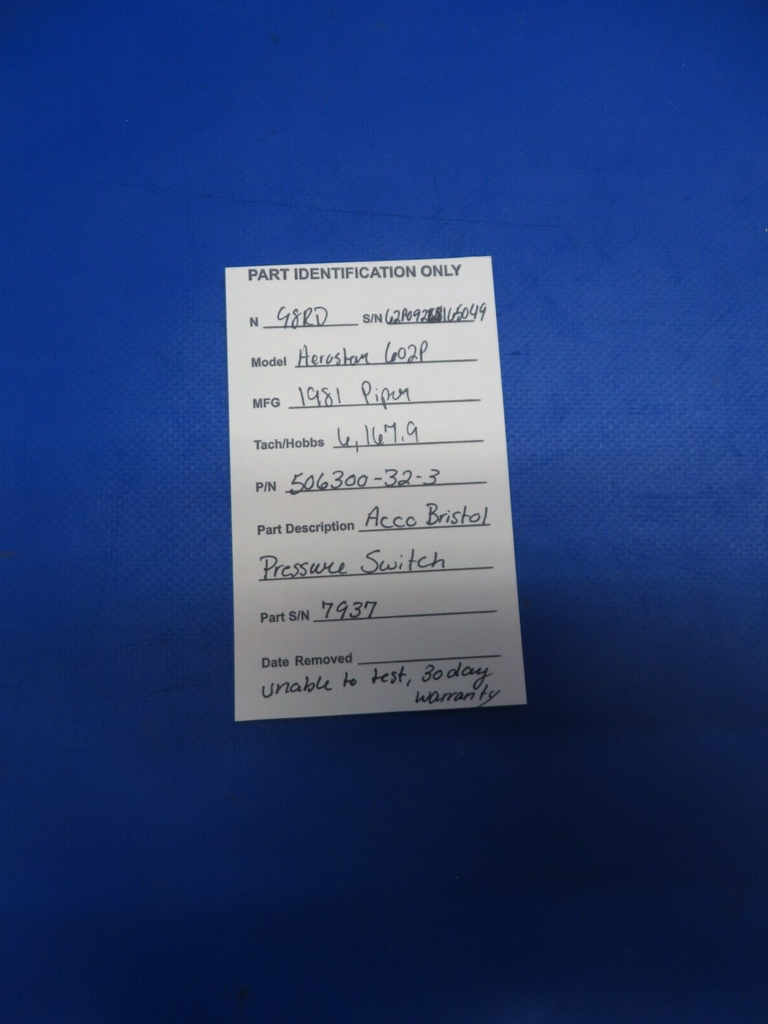 PART IDENTIFICATION ONLY
N 98RD S/N 62P092 8165049
Model Aerostar 602P
MFG 1981 Piper
Tach/Hobbs 6,167.9
P/N 506300-32-3
Part Description Acco Bristol
Pressure Switch
Part S/N 7937
Date Removed
unable to test, 30 day
warranty